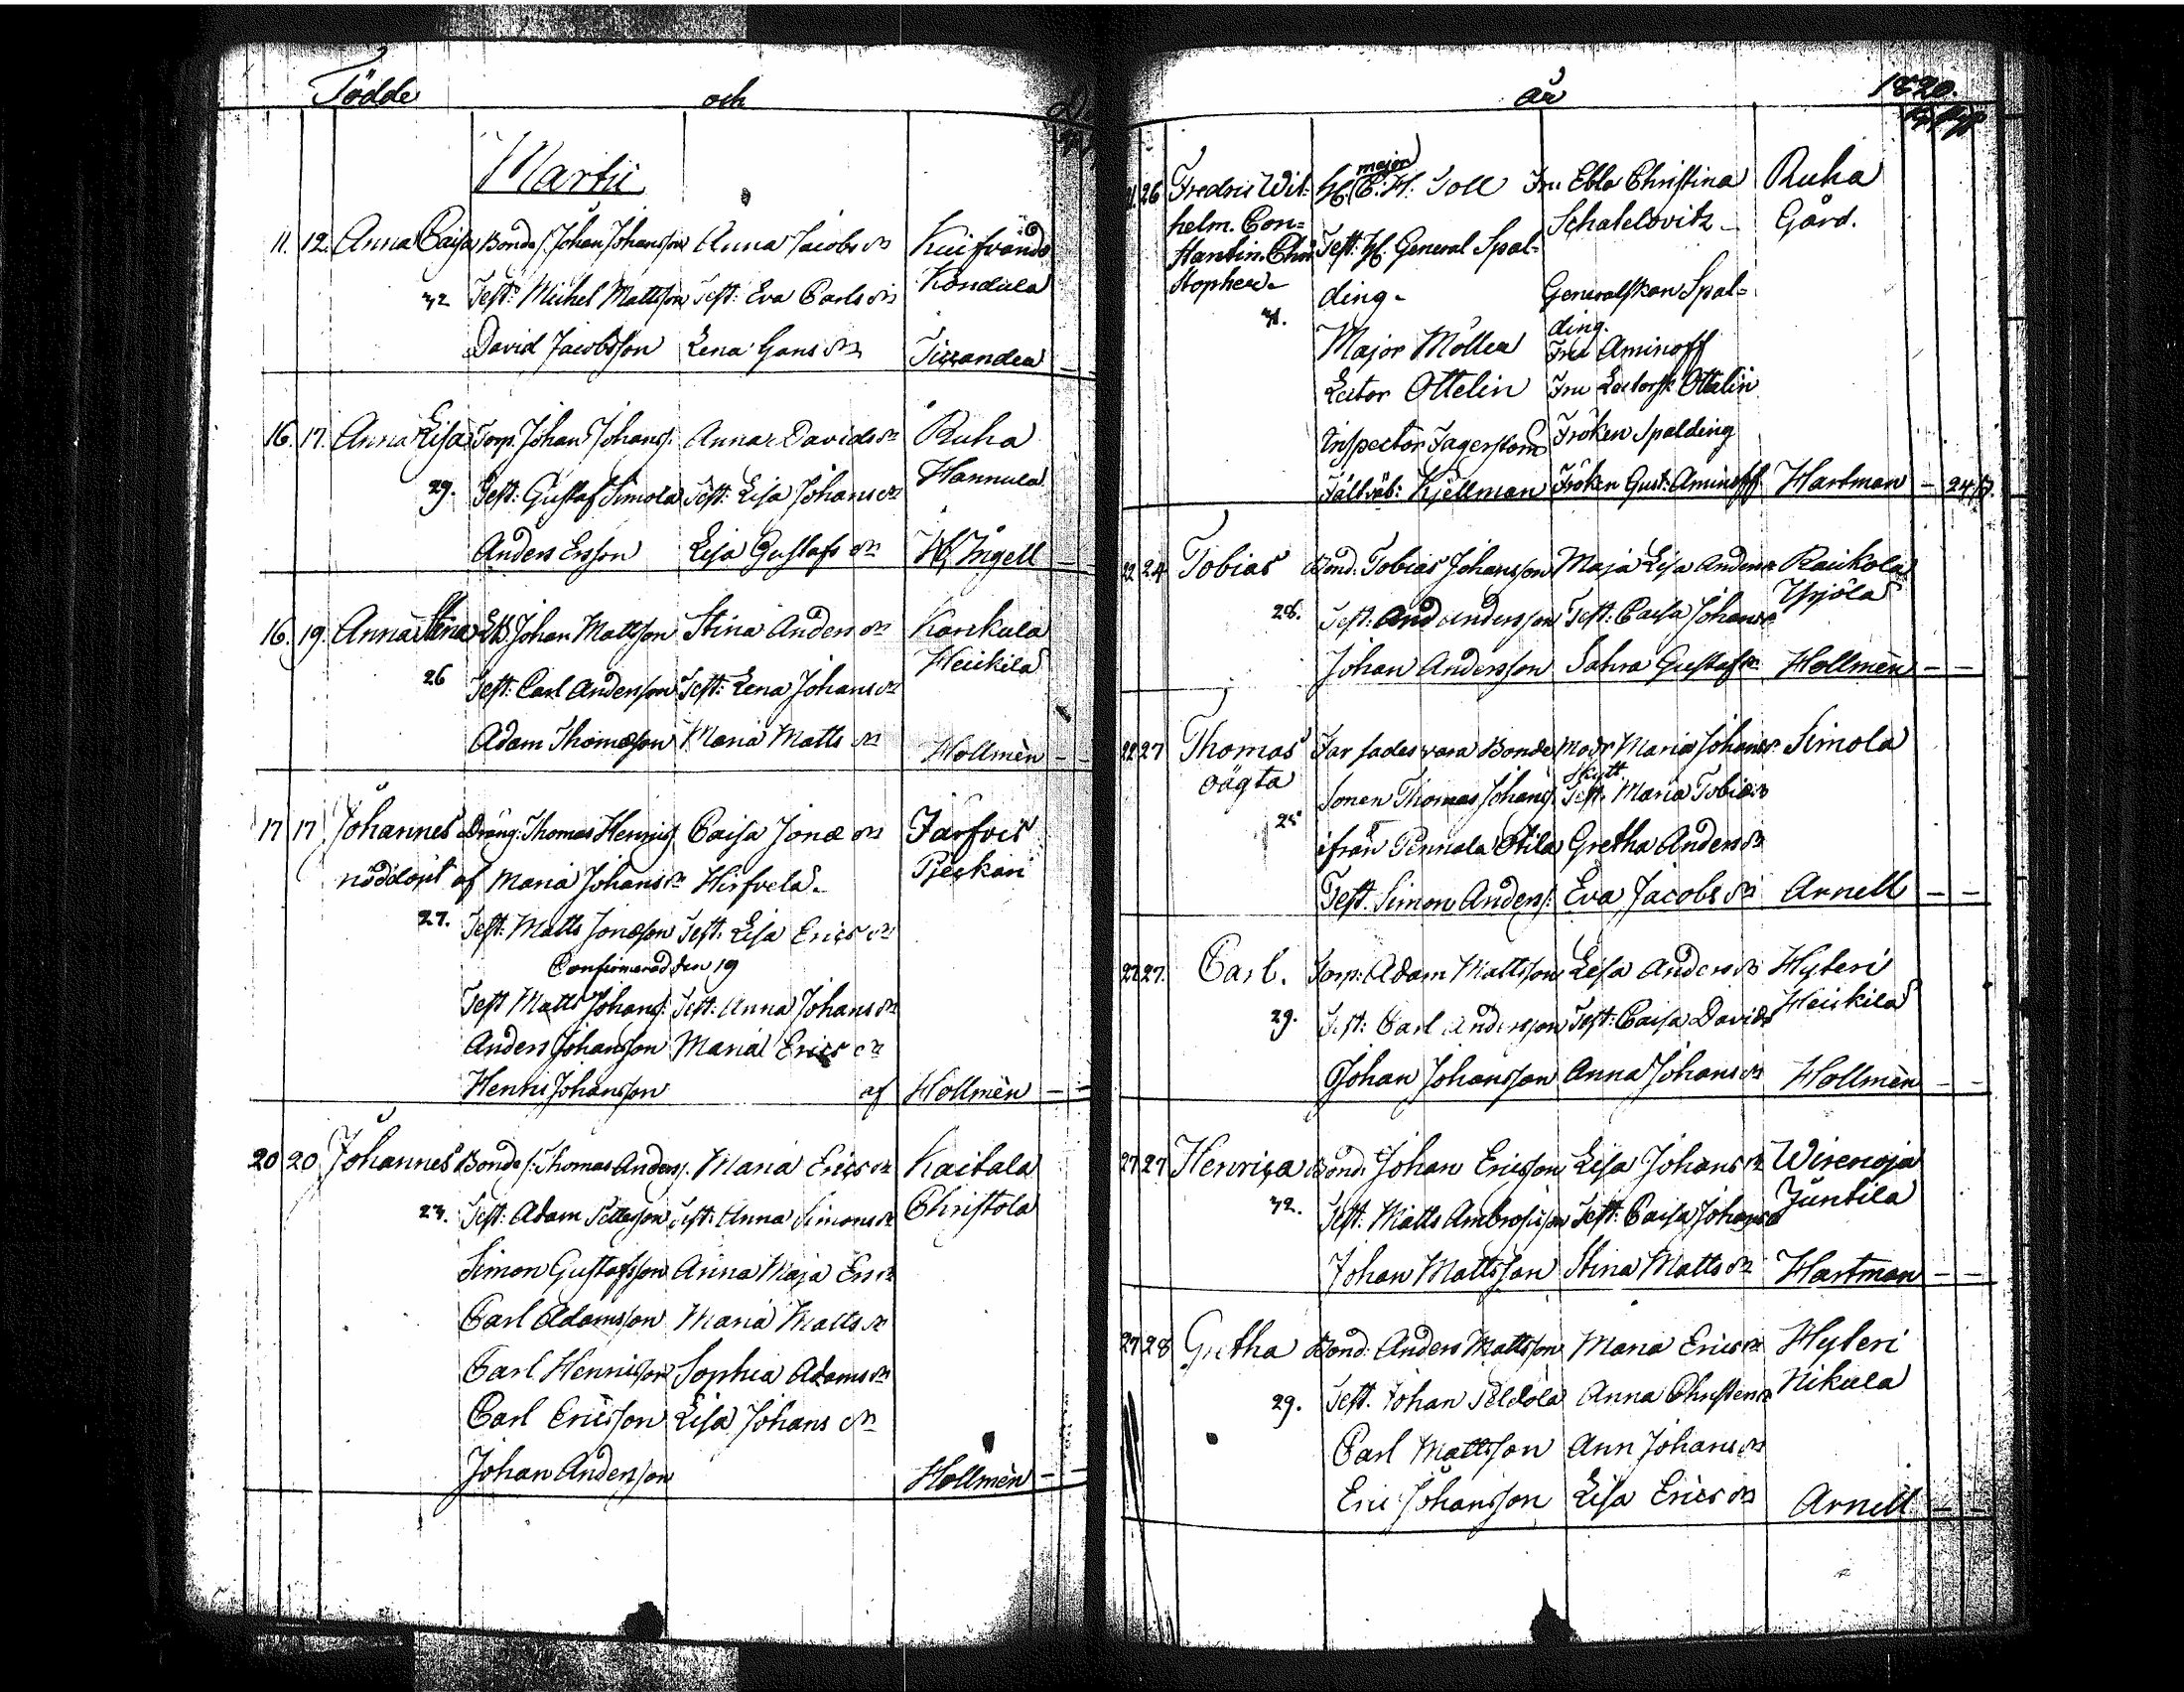 Födde och
Martii
11. 12. Anna Caisa Bondes. Johan Johansson Anna Jacobs dr Kuifvando
32 Test: Michel Mattsson Test: Eva Carls dr Kondula
David Jacobsson Lena Hans dr
16. 17. Anna Lisa Torp. Johan Johanss. Anna Davids dr Ruha
29. Test: Gustaf Simola Test: Lisa Johans dr Hannula
Anders Ersson Lisa Gustafs dr H. Ingell
16. 19. Anna Stina Johan Mattsson Stina Anders dr Kankula
26 Test: Carl Andersson Test: Lena Johans dr Heickilä
Adam Thomasson Maria Matts dr Hollmèn
17 17 Johannes Dräng. Thomas Henriss. Caisa Jonæ dr Jarfvis
nöddöpt af Maria Johans dr Hirfvelä. Pjeskari
27. Test: Matts Jonæson Test: Lisa Erics dr
Confirmerad den 19
Test Matts Johans: Test: Anna Johans dr
Anders Johansson Maria Erics dr
Henric Johansson af Hollmèn
20 20 Johannes Bondes. Thomas Anders. Maria Erics dr Kaitala
23. Test: Adam Pettersson Test: Anna Simons dr Christola
Simon Gustafsson Anna Maja Ers dr
Carl Adamsson Maria Matts dr
Carl Henricsson Sophia Adams dr
Carl Ericsson Lisa Johans dr
Johan Andersson Hollmèn
år 1820.
21. 26 Fredric Wil= H. major C. H. Toll Fru Ebba Christina Ruha
helm. Con= Schatelovitz Gård.
stantin. Chri Test: H. General Spal=
stopher ding. Generalskan Spal=
31. ding.
Major Möller Fru Aminoff
Lector Ottelin Fru Lectorsk Ottelin
Inspector Fagerstöm Fröken Spalding
Fältväb: Kjellman Fröken Gust: Aminoff Hartman 24
22 24 Tobias Bond. Tobias Johansson Maja Lisa Anders Raickola
28. Test: And Andersson Test: Caisa Johans Yrjölä
Johan Andersson Sahra Gustafs dr Hollmèn
22 27 Thomas Far sades vara Bonde Modr Maria Johans dr Simola
oägta Sonen Thomas Johans. Test. Maria Tobiæ dr
25 ifrån Pennala Otila Gretha Anders dr
Test. Simon Anders. Eva Jacobs dr Arnell
22 27. Carl. Torp: Adam Mattsson Lisa Anders dr Hyteri
29. Test: Carl Andersson Test: Caisa Davids Heickilä
Johan Johansson Anna Johans dr Hollmèn
27 27 Henrica Bond. Johan Ericsson Lisa Johans dr Wirenoja
32. Test: Matts Ambrosiison Test: Caisa Johans Juntila
Johan Mattsson Stina Matts dr Hartman
27 28 Gretha Bond: Anders Mattsson Maria Erics dr Hyteri
29. Test. Johan Peldola Anna Christers Nikula
Carl Mattsson Ann Johans dr
Eric Johansson Lisa Erics dr Arnell